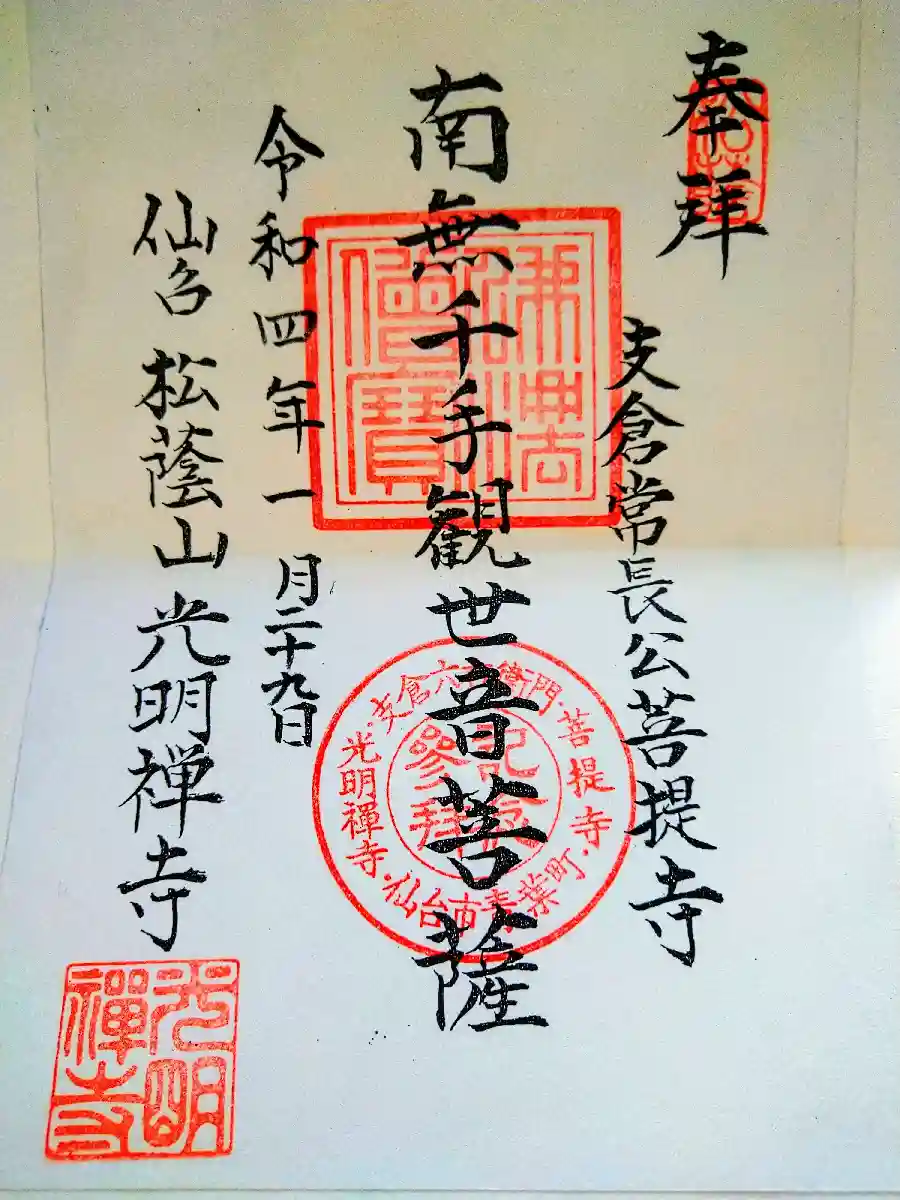 奉拝
支倉常長公菩提寺
南無千手観世音菩薩
令和四年一月二十九日
仙台 松蔭山 光明禅寺
佛法僧寶
支倉六右衛門・菩提寺・仙台市青葉町・光明禪寺
記念参拜
光明禪寺